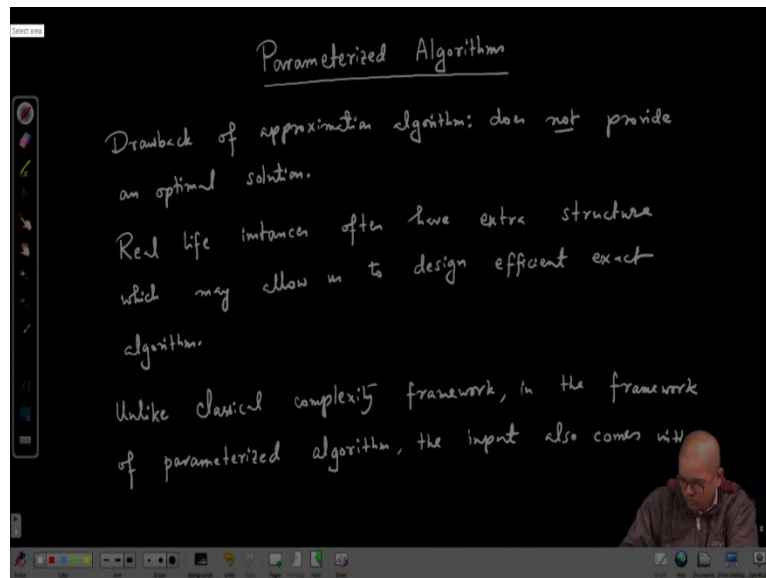 Select area
Parameterized Algorithms
Drawback of approximation algorithm: does not provide
an optimal solution.
Real life instances often have extra structure
which may allow us to design efficient exact
algorithm.
Unlike classical complexity framework, in the framework
of parameterized algorithm, the input also comes with